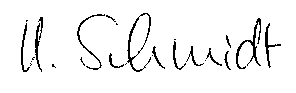 U. Schmidt